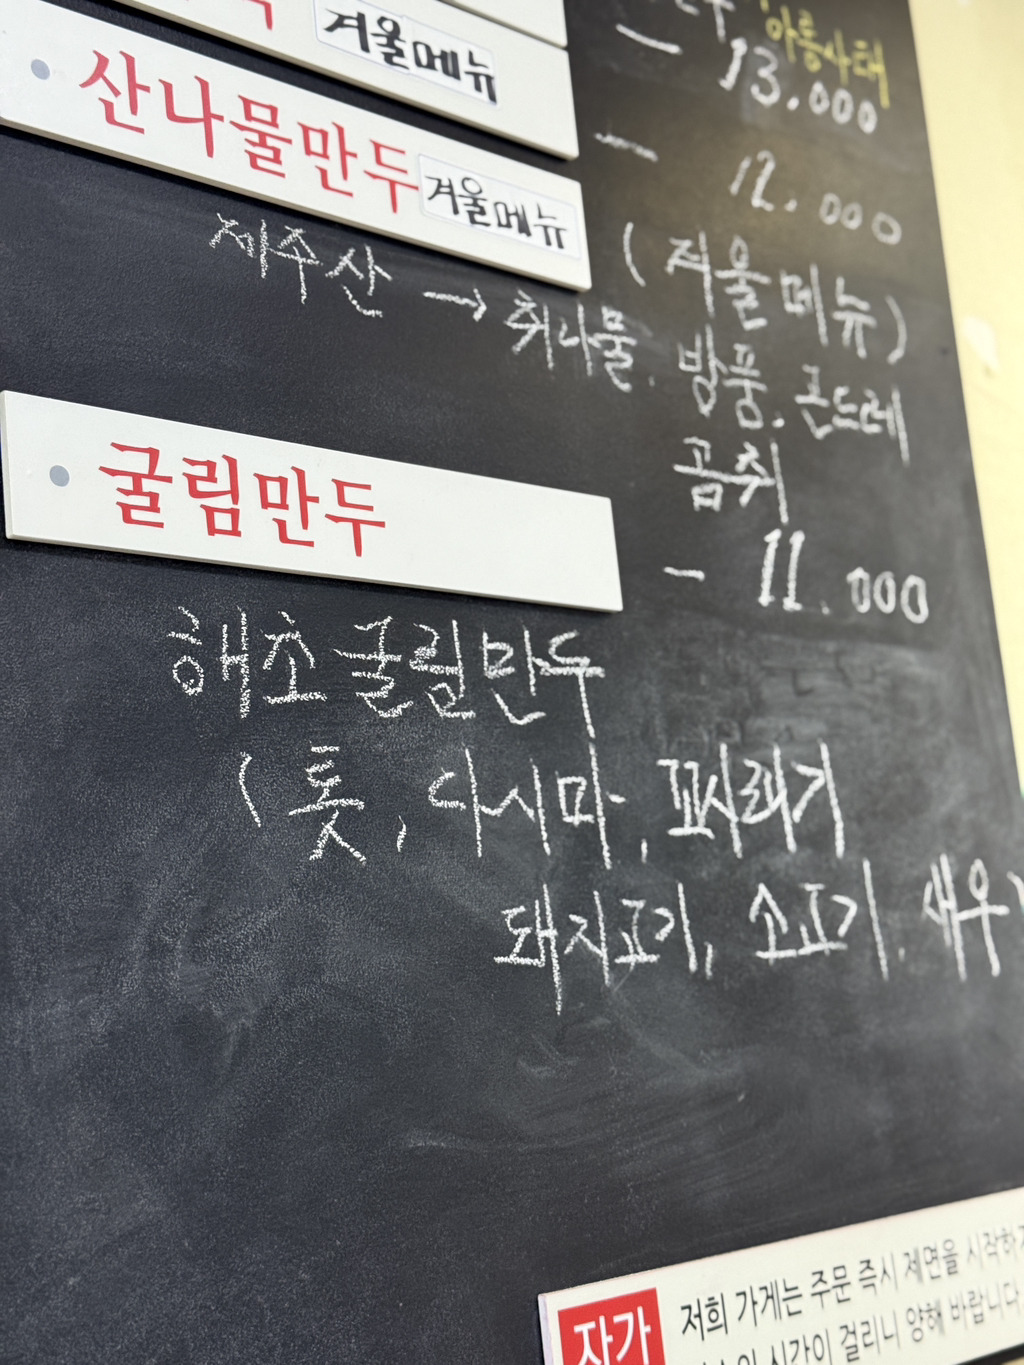 겨울메뉴
아롱사태
- 13.000
산나물만두 겨울메뉴
- 12.000
(겨울메뉴)
제주산 → 취나물, 방풍, 곤드레
곰취
굴림만두
- 11.000
해초굴림만두
(톳, 다시마, 꼬시래기
돼지고기, 소고기, 새우)
자가
저희 가게는 주문 즉시 제면을 시작하
시간이 걸리니 양해 바랍니다